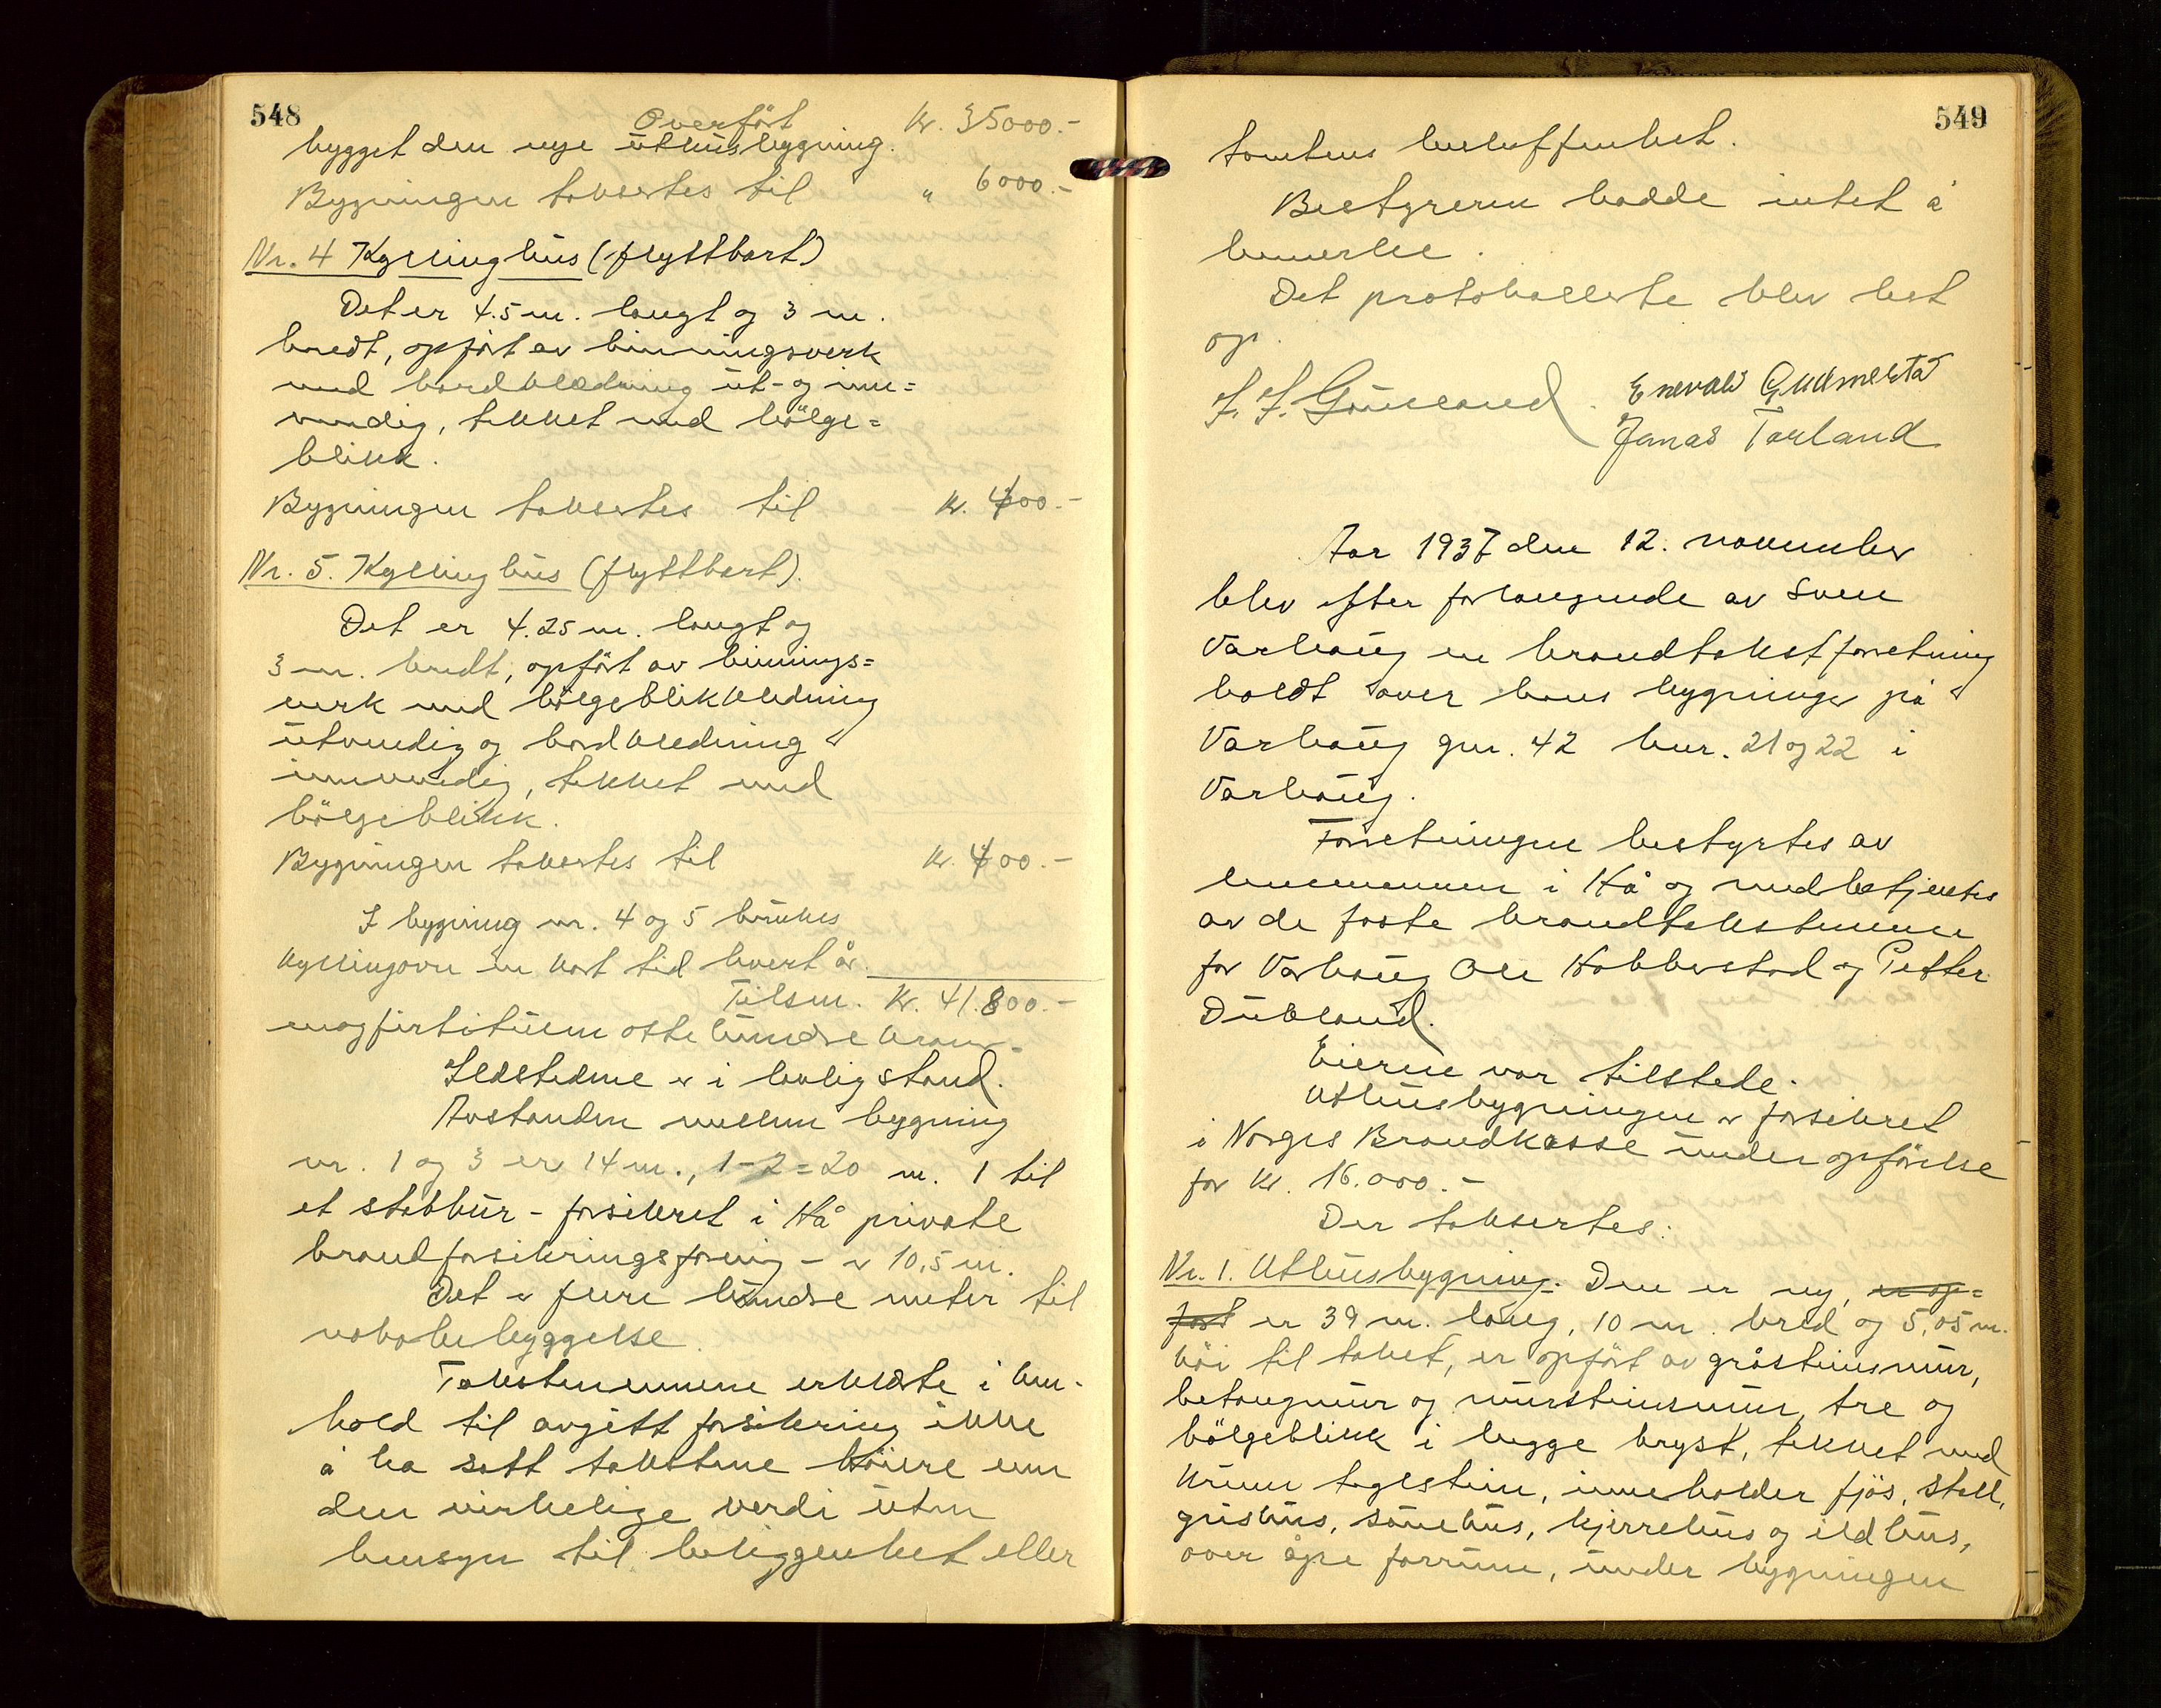 548
Overført Kr. 35000.-
bygget den nye uthusbygning.
Bygningen takseres til " 6000.-
Nr. 4 Kyllinghus (flyttbart)
Det er 4.5 m. langt og 3 m.
bredt, opført av binningsverk
med bordklædning ut- og inn=
vendig, tekket med bølge=
blikk.
Bygningen taksertes til Kr. 400.-
Nr. 5. Kyllinghus (flyttbart).
Det er 4.25 m. langt og
3 m. bredt, opført av binnings=
verk med bølgeblikkledning
utvendig og bordkledning
innvendig, tekket med
bølgeblikk.
Bygningen taksertes til Kr. 400.-
I bygning nr. 4 og 5 brukes
kyllingovn en kort tid hvert år.
Tilsm. Kr. 41.800.-
enogfirtitusen otte hundre kroner.
Ildstedene er i lovlig stand.
Avstanden mellem bygning
nr. 1 og 3 er 14 m., 1-2 = 20 m. 1 til
et stabbur - forsikret i Hå private
brandforsikringsforening - er 10,5 m.
Det er flere hundre meter til
nabobebyggelse.
Takstmennene erklærte i hen-
hold til avgitt forsikring ikke
å ha satt takstene høiere enn
den virkelige verdi uten
hensyn til beliggenhet eller
549
tomtens beskaffenhet.
Bestyreren hadde intet å
bemerke.
Det protokollerte blev lest
op.
Enevald Gudmestad
Jonas Torland
Aar 1937 den 12. november
blev efter forlangende av Sven
Varhaug en brandtakstforretning
holdt over hans bygninger på
Varhaug gnr. 42 bnr. 21 og 22 i
Varhaug.
Forretningen bestyrtes av
lensmannen i Hå og medbetjentes
av de faste brandtakstmenn
for Varhaug Ole Hobberstad og Petter
Dubland.
Eieren var tilstede.
Uthusbygningen er forsikret
i Norges Brandkasse under opførelse
for Kr. 16.000.-
Der taksertes:
Nr. 1. Uthusbygning. Den er ny, er op=
ført er 39 m. lang, 10 m. bred og 5,05 m.
høi til taket, er opført av gråsteinsmur,
betongmur og mursteinsmur, tre og
bølgeblikk i begge bryst, tekket med
krum teglstein, inneholder fjøs, stall,
grishus, sauehus, kjerrehus og ildhus,
over åpne forrume, under bygningen